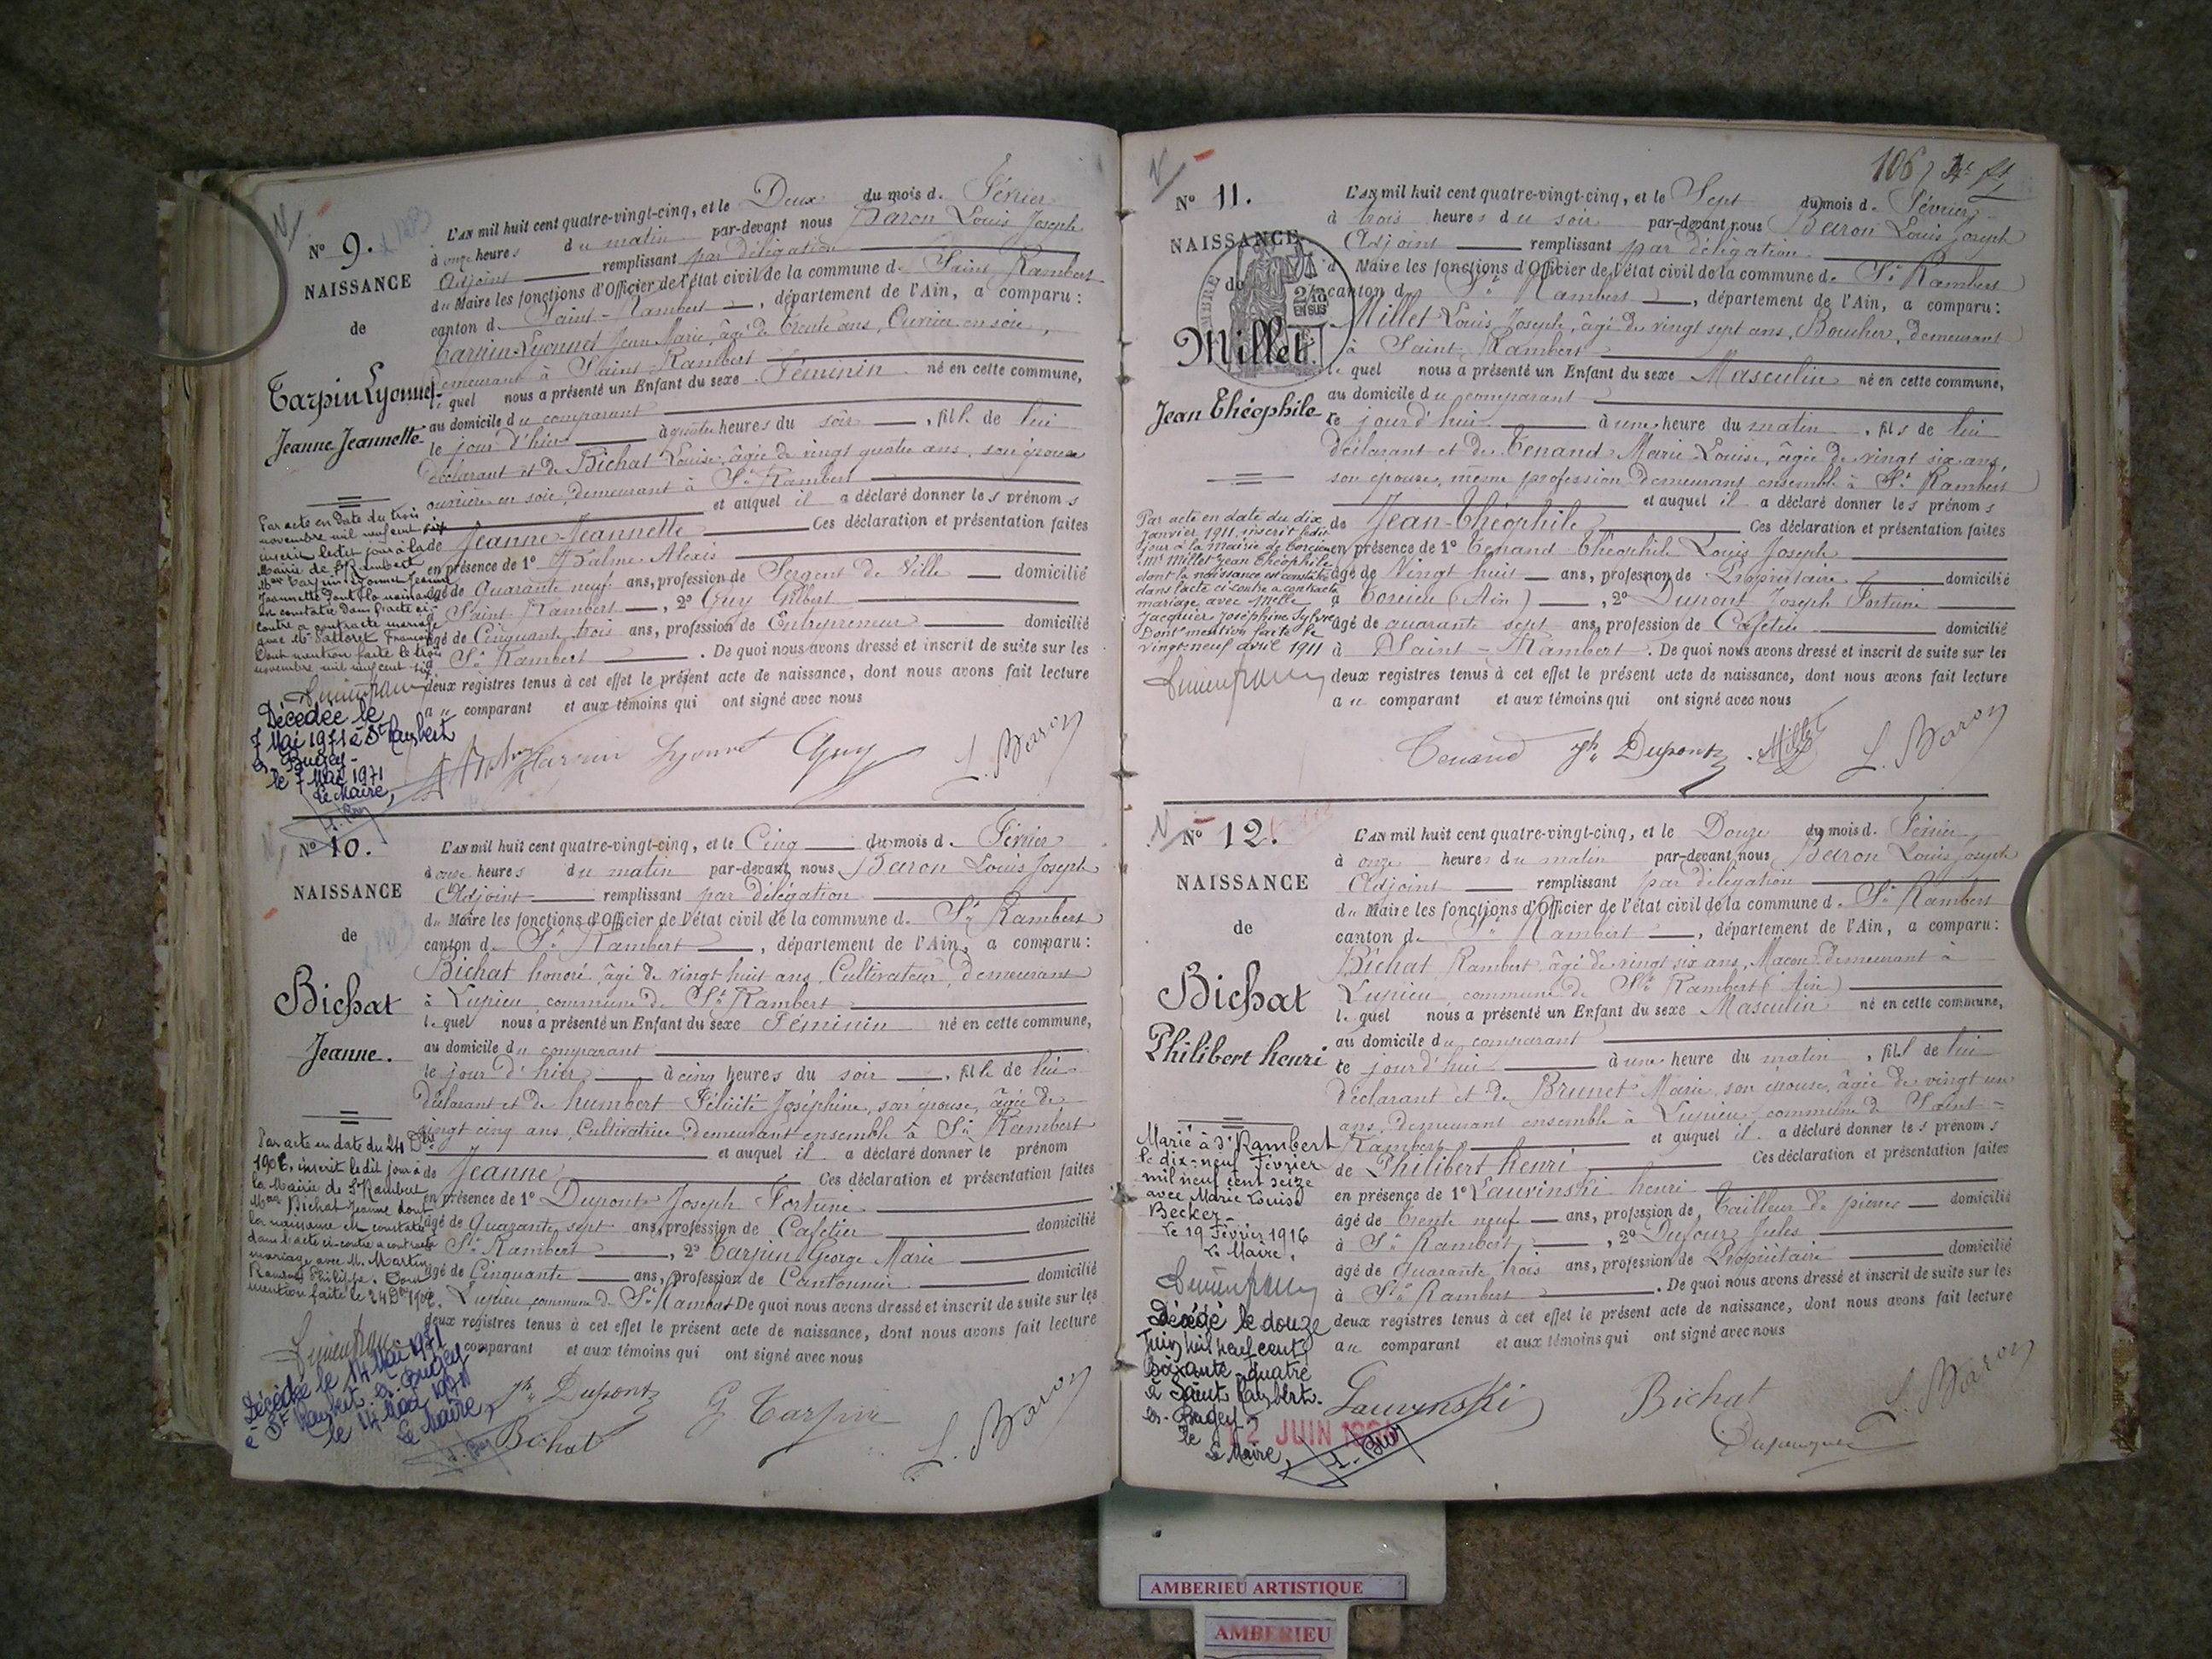 N° 9.
NAISSANCE
de
Tarpin Lyonnet
Jeanne Jeannette
L'AN mil huit cent quatre-vingt-cinq, et le Deux du mois de Février
à onze heures du matin par-devant nous Baron Louis Joseph
Adjoint remplissant par délégation
du Maire les fonctions d'Officier de l'état civil de la commune de Saint-Rambert
canton de Saint-Rambert, département de l'Ain, a comparu:
Tarpin-Lyonnet Jean Marie, âgé de trente ans, Ouvrier en soie,
demeurant à Saint-Rambert
le quel nous a présenté un Enfant du sexe Féminin né en cette commune,
au domicile du comparant
le jour d'hier à quatre heures du soir, fille de lui
déclarant et de Bichat Louise, âgée de vingt quatre ans, son épouse
ouvrière en soie, demeurant à St Rambert
et auquel il a déclaré donner les prénoms
de Jeanne-Jeannette Ces déclaration et présentation faites
en présence de 1° Balme Alexis
âgé de Quarante neuf ans, profession de Sergent de Ville domicilié
à Saint-Rambert, 2° Guy Gilbert
âgé de Cinquante trois ans, profession de Entrepreneur domicilié
à St Rambert. De quoi nous avons dressé et inscrit de suite sur les
deux registres tenus à cet effet le présent acte de naissance, dont nous avons fait lecture
au comparant et aux témoins qui ont signé avec nous
Tarpin Lyonnet Guy L. Baron
Par acte en date du trois
novembre mil neuf cent six
inscrit ledit jour à la
Mairie de St Rambert
Tarpin-Lyonnet Jeanne
Jeannette dont la naissance
est constatée dans l'acte ci-
contre a contracté mariage
avec Mr François
Dont mention faite le trois
novembre mil neuf cent six
Décédée le
7 Mai 1971 à St Rambert
en Bugey-
le 7 Mai 1971
Le Maire,
N° 10.
NAISSANCE
de
Bichat
Jeanne.
L'AN mil huit cent quatre-vingt-cinq, et le Cinq du mois de Février
à onze heures du matin par-devant nous Baron Louis Joseph
Adjoint remplissant par délégation
du Maire les fonctions d'Officier de l'état civil de la commune de St Rambert
canton de St Rambert, département de l'Ain, a comparu:
Bichat honoré, âgé de vingt huit ans, Cultivateur, demeurant
à Lupieu, commune de St Rambert
le quel nous a présenté un Enfant du sexe Féminin né en cette commune,
au domicile du comparant
le jour d'hier à cinq heures du soir, fille de lui
déclarant et de humbert Félicité Joséphine, son épouse, âgée de
vingt cinq ans, Cultivatrice, demeurant ensemble à St Rambert
et auquel il a déclaré donner le prénom
de Jeanne Ces déclaration et présentation faites
en présence de 1° Dupont Joseph Fortuné
âgé de Quarante sept ans, profession de Cafetier domicilié
à St Rambert, 2° Tarpin George Marie
âgé de Cinquante ans, profession de Cantonnier domicilié
à Lupieu, commune de St Rambert De quoi nous avons dressé et inscrit de suite sur les
deux registres tenus à cet effet le présent acte de naissance, dont nous avons fait lecture
au comparant et aux témoins qui ont signé avec nous
Jh Dupont G Tarpin L. Baron
Bichat
Par acte en date du 24 Dbre
1906, inscrit ledit jour à
la Mairie de St Rambert
Bichat Jeanne dont
la naissance est constatée
dans l'acte ci-contre a contracté
mariage avec M. Martin
Philippe. Dont
mention faite le 24 Dbre 1906.
Décédée le 14 Mai 1971
à St Rambert-en-Bugey
le 14 Mai 1971
Le Maire,
106
N° 11.
NAISSANCE
de
Millet
Jean Théophile
2/10
EN SUS
L'AN mil huit cent quatre-vingt-cinq, et le Sept du mois de Février
à trois heures du soir par-devant nous Baron Louis Joseph
Adjoint remplissant par délégation
d Maire les fonctions d'Officier de l'état civil de la commune de St Rambert
canton de St Rambert, département de l'Ain, a comparu:
Millet Louis Joseph, âgé de vingt sept ans, Boucher, demeurant
à Saint-Rambert
le quel nous a présenté un Enfant du sexe Masculin né en cette commune,
au domicile du comparant
le jourd'hui à une heure du matin, fils de lui
déclarant et de Tenand Marie Louise, âgée de vingt six ans,
son épouse, même profession demeurant ensemble à St Rambert
et auquel il a déclaré donner les prénoms
de Jean-Théophile Ces déclaration et présentation faites
en présence de 1° Tenand Théophile Louis Joseph
âgé de Vingt huit ans, profession de Propriétaire domicilié
à Torcieu (Ain), 2° Dupont Joseph Fortuné
âgé de quarante sept ans, profession de Cafetier domicilié
à Saint-Rambert. De quoi nous avons dressé et inscrit de suite sur les
deux registres tenus à cet effet le présent acte de naissance, dont nous avons fait lecture
au comparant et aux témoins qui ont signé avec nous
Tenand Jh Dupont Millet L. Baron
Par acte en date du dix
Janvier 1911, inscrit ledit
jour à la Mairie de Torcieu
Mr Millet Jean Théophile
dont la naissance est constatée
dans l'acte ci contre a contracté
mariage avec Melle
Jacquier Joséphine Sylvie
Dont mention faite le
vingt-neuf avril 1911
N° 12.
NAISSANCE
de
Bichat
Philibert henri
L'AN mil huit cent quatre-vingt-cinq, et le Douze du mois de Février
à onze heures du matin par-devant nous Baron Louis Joseph
Adjoint remplissant par délégation
du Maire les fonctions d'Officier de l'état civil de la commune de St Rambert
canton de St Rambert, département de l'Ain, a comparu:
Bichat Rambert, âgé de vingt six ans, Maçon, demeurant à
Lupieu, commune de St Rambert (Ain)
le quel nous a présenté un Enfant du sexe Masculin né en cette commune,
au domicile du comparant
le jourd'hui à une heure du matin, fils de lui
déclarant et de Brunet Marie, son épouse, âgée de vingt un
ans, demeurant ensemble à Lupieu, commune de Saint-
Rambert et auquel il a déclaré donner les prénoms
de Philibert henri Ces déclaration et présentation faites
en présence de 1° Lauvinski henri
âgé de trente neuf ans, profession de Tailleur de pierres domicilié
à St Rambert, 2° Dufour Jules
âgé de Quarante trois ans, profession de Propriétaire domicilié
à St Rambert. De quoi nous avons dressé et inscrit de suite sur les
deux registres tenus à cet effet le présent acte de naissance, dont nous avons fait lecture
au comparant et aux témoins qui ont signé avec nous
Lauvinski Bichat L. Baron
Marié à St Rambert
le dix-neuf Février
mil neuf cent seize
avec Marie Louise
Becker-
Le 19 Février 1916
Le Maire,
Décédé le douze
Juin mil neuf cent
soixante-quatre
à Saint Rambert-
en-Bugey
le 12 JUIN
Le Maire,
AMBERIEU ARTISTIQUE
AMBERIEU